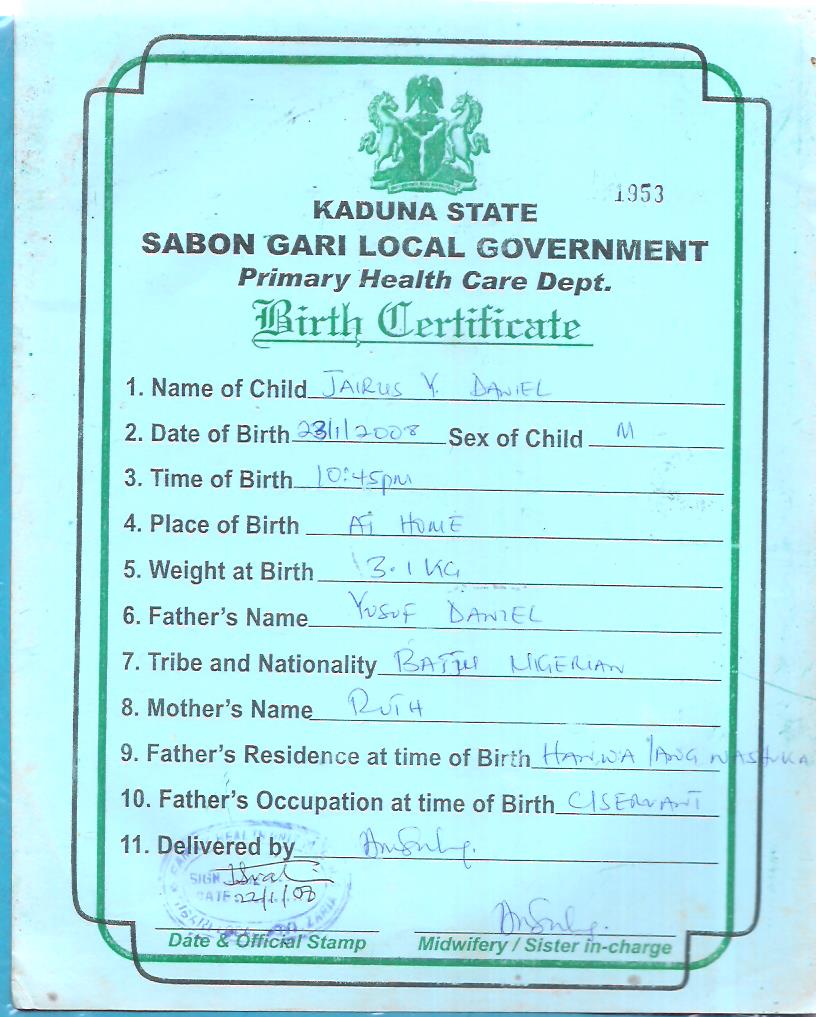 1953
KADUNA STATE
SABON GARI LOCAL GOVERNMENT
Primary Health Care Dept.
Birth Certificate
1. Name of Child JAIRUS Y. DANIEL
2. Date of Birth 23/1/2008 Sex of Child M
3. Time of Birth 10:45pm
4. Place of Birth At HOME
5. Weight at Birth 3.1 KG
6. Father's Name YUSUF DANIEL
7. Tribe and Nationality BATJU NIGERIAN
8. Mother's Name RUTH
9. Father's Residence at time of Birth HANWA
10. Father's Occupation at time of Birth C/SERVANT
11. Delivered by
SIGN
DATE 22/1/08
Date & Official Stamp Midwifery / Sister in-charge